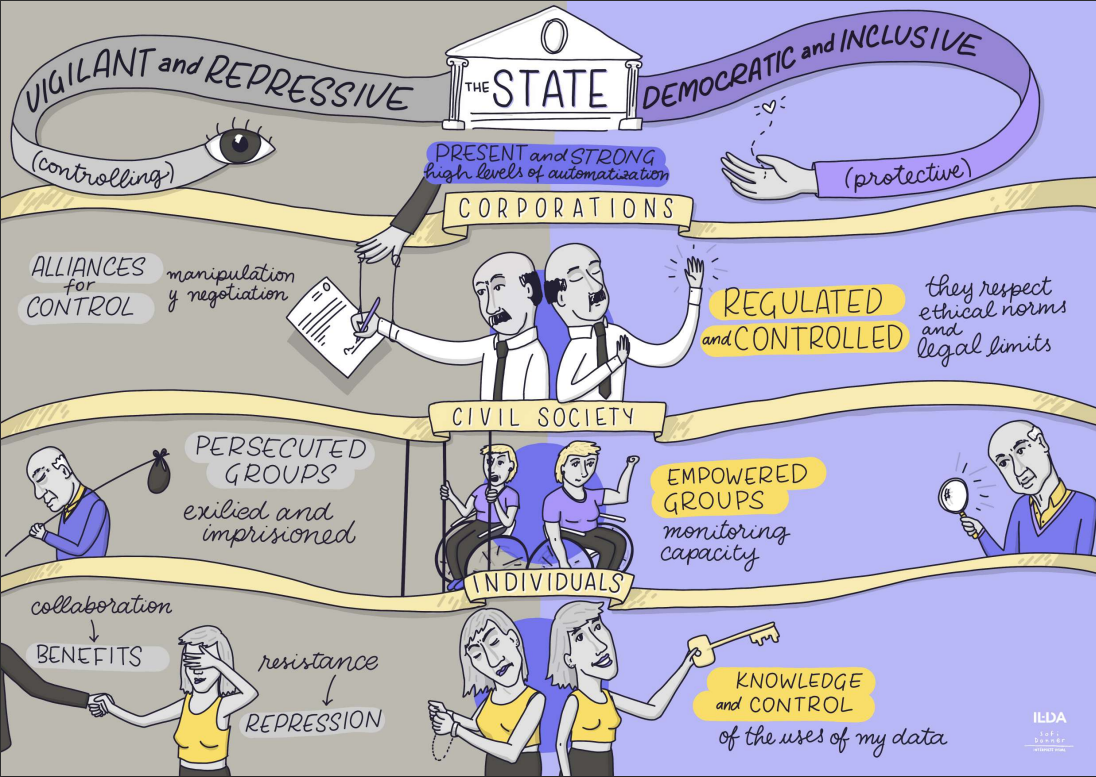 THE STATE
VIGILANT and REPRESSIVE
(controlling)
DEMOCRATIC and INCLUSIVE
(protective)
PRESENT and STRONG
high levels of automatization
CORPORATIONS
ALLIANCES
for
CONTROL
manipulation
y negotiation
REGULATED
and CONTROLLED
they respect
ethical norms
and
legal limits
CIVIL SOCIETY
PERSECUTED
GROUPS
exilied and
imprisioned
EMPOWERED
GROUPS
monitoring
capacity
INDIVIDUALS
collaboration
BENEFITS
resistance
REPRESSION
KNOWLEDGE
and CONTROL
of the uses of my data
ILDA
Sofi
Donner